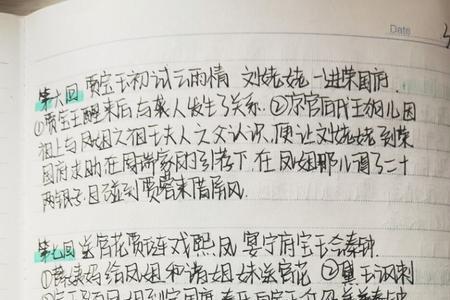 Date
第六回 贾宝玉初试云雨情 刘姥姥一进荣国府.
①贾宝玉醒来后与袭人发生了关系. ②京官后代王狗儿因
祖上与凤姐之祖王夫人之父认识, 便让刘姥姥到荣
国府求助, 在周瑞家的引荐下, 在凤姐那儿调了二十
两银子, 且碰到贾蓉来借屏风.
第七回 送宫花贾琏戏熙凤 宴宁府宝玉会秦钟.
①薛姨妈给凤姐和诸姐妹送宫花 ②